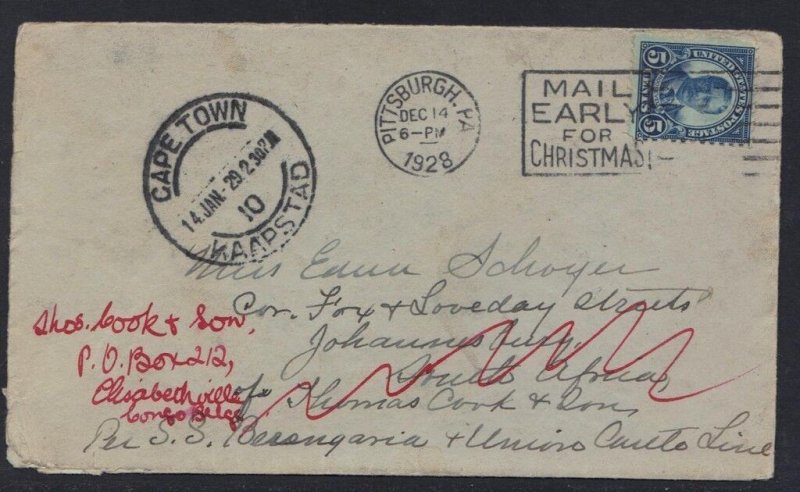 PITTSBURGH, PA
DEC 14
6-PM
1928
MAIL
EARLY
FOR
CHRISTMAS!
5 UNITED STATES POSTAGE 5
CAPE TOWN
14 JAN. 29. 2 30 PM
10
KAAPSTAD
Miss Edna Schoyer
Cor. Fox & Loveday Streets
Johannesburg,
South Africa,
c/o Thomas Cook & Son,
Per S.S. Berengaria & Union Castle Line
Thos. Cook & Son,
P.O. Box 212,
Elisabethville
Congo Belge